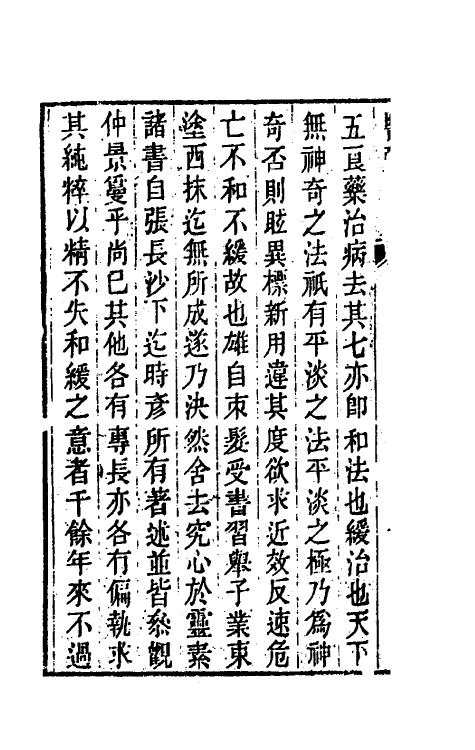 五良藥治病去其七亦卽和法也緩治也天下
無神奇之法祇有平淡之法平淡之極乃爲神
奇否則眩異標新用違其度欲求近效反速危
亡不和不緩故也雄自束髮受書習舉子業東
塗西抹迄無所成遂乃決然舍去究心於靈素
諸書自張長沙下迄時彥所有著述並皆叅觀
仲景敻乎尚已其他各有專長亦各有偏執求
其純粹以精不失和緩之意者千餘年來不過